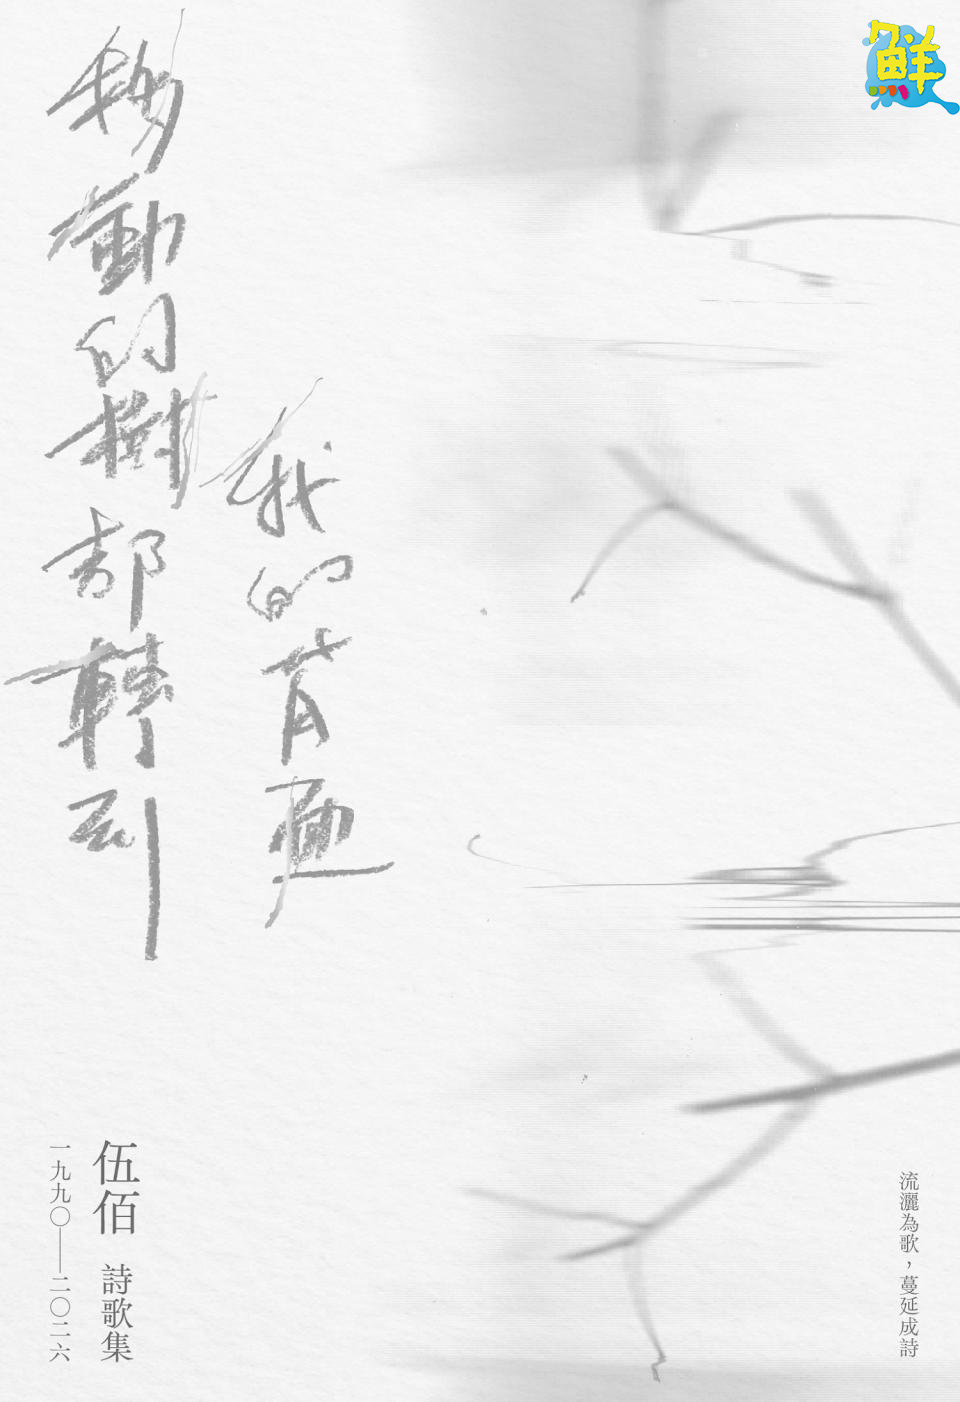 移動的樹都轉到
我的背面
伍佰 詩歌集
一九九〇——二〇二六
流灑為歌，蔓延成詩
鮮